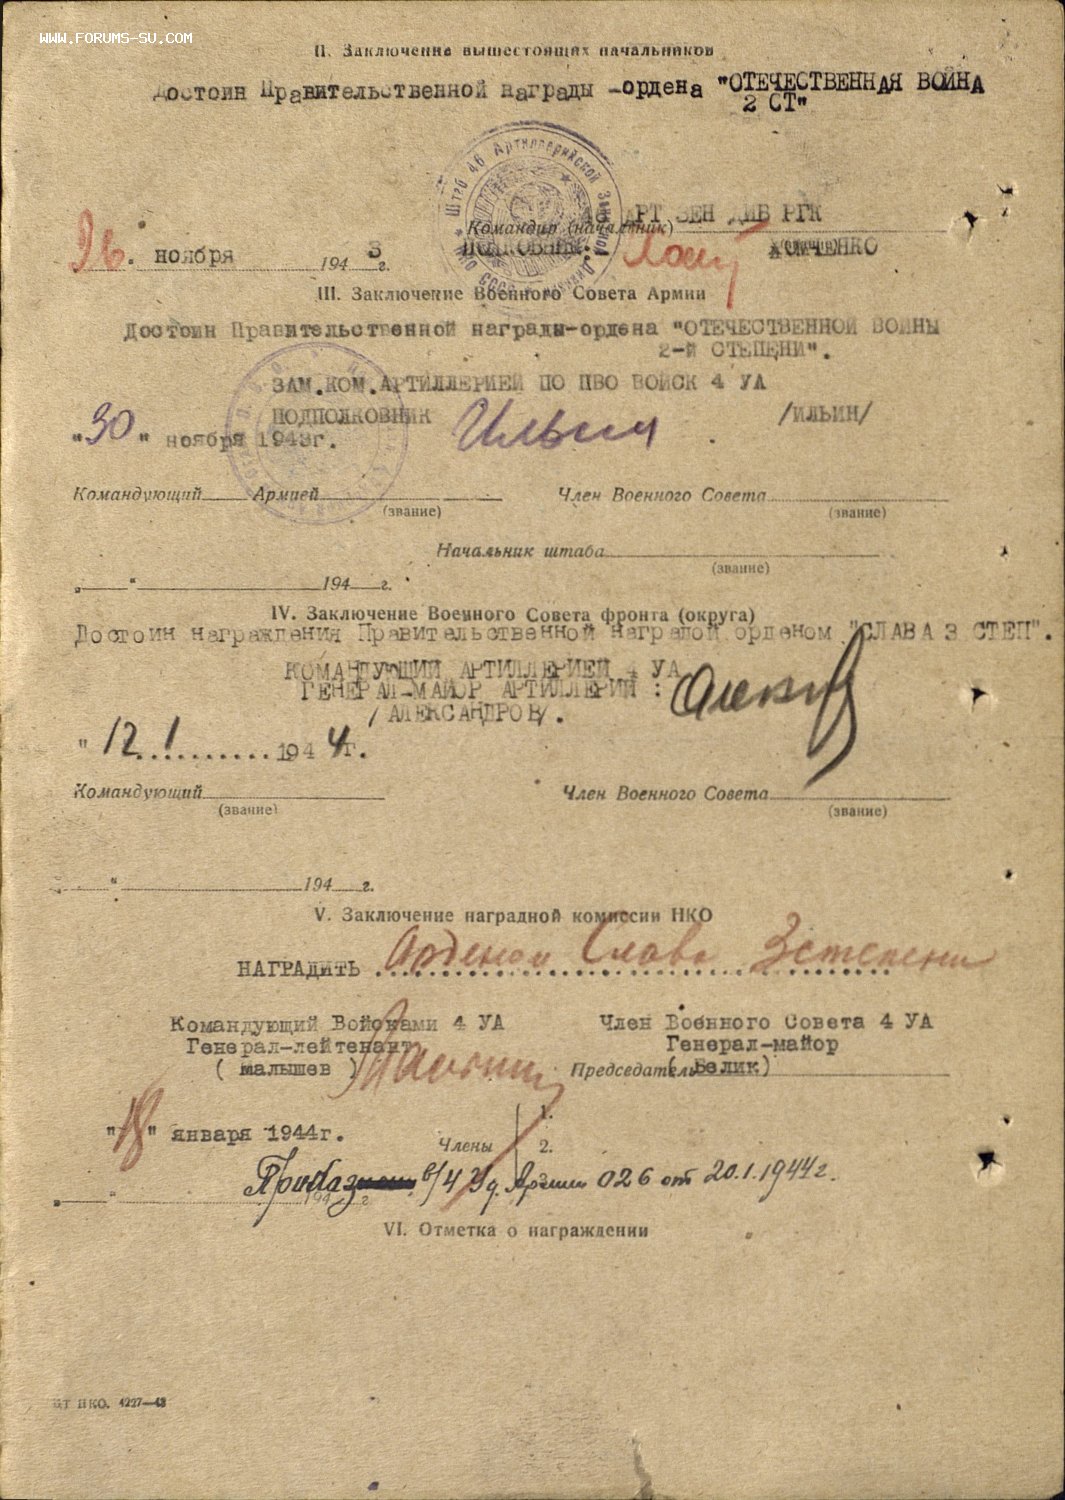 WWW.FORUMS-SU.COM
II. Заключение вышестоящих начальников
Достоин Правительственной награды -ордена "ОТЕЧЕСТВЕННАЯ ВОЙНА
2 СТ"
Штаб 46 Артиллерийской Зенитной
АРТ ЗЕН ДИВ РГК
Командир (начальник)
26. ноября 1943 г.
ХОМЧЕНКО
III. Заключение Военного Совета Армии
Достоин Правительственной награды-ордена "ОТЕЧЕСТВЕННОЙ ВОЙНЫ
2-й СТЕПЕНИ".
ЗАМ.КОМ.АРТИЛЛЕРИЕЙ ПО ПВО ВОЙСК 4 УА
ПОДПОЛКОВНИК Ильин /ИЛЬИН/
"30" ноября 1943г.
Командующий Армией
(звание)
Член Военного Совета
(звание)
Начальник штаба
(звание)
„ “ 194 г.
IV. Заключение Военного Совета фронта (округа)
Достоин награждения Правительственной наградой орденом "СЛАВА 3 СТЕП".
КОМАНДУЮЩИЙ АРТИЛЛЕРИЕЙ 4 УА
ГЕНЕРАЛ-МАЙОР АРТИЛЛЕРИИ :
/АЛЕКСАНДРОВ/.
" 12.1.......... 1944г.
Командующий
(звание)
Член Военного Совета
(звание)
“ 194 г.
V. Заключение наградной комиссии НКО
НАГРАДИТЬ Орденом Слава 3 степени
Командующий Войсками 4 УА
Генерал-лейтенант
( малышев )
Член Военного Совета 4 УА
Генерал-майор
Председатель ( Белик)
"18" января 1944г.
Члены
1.
2.
в/4 Уд. Армии 026 от 20.1.1944г.
„ “ 194 г
VI. Отметка о награждении
НКО. 4227—43